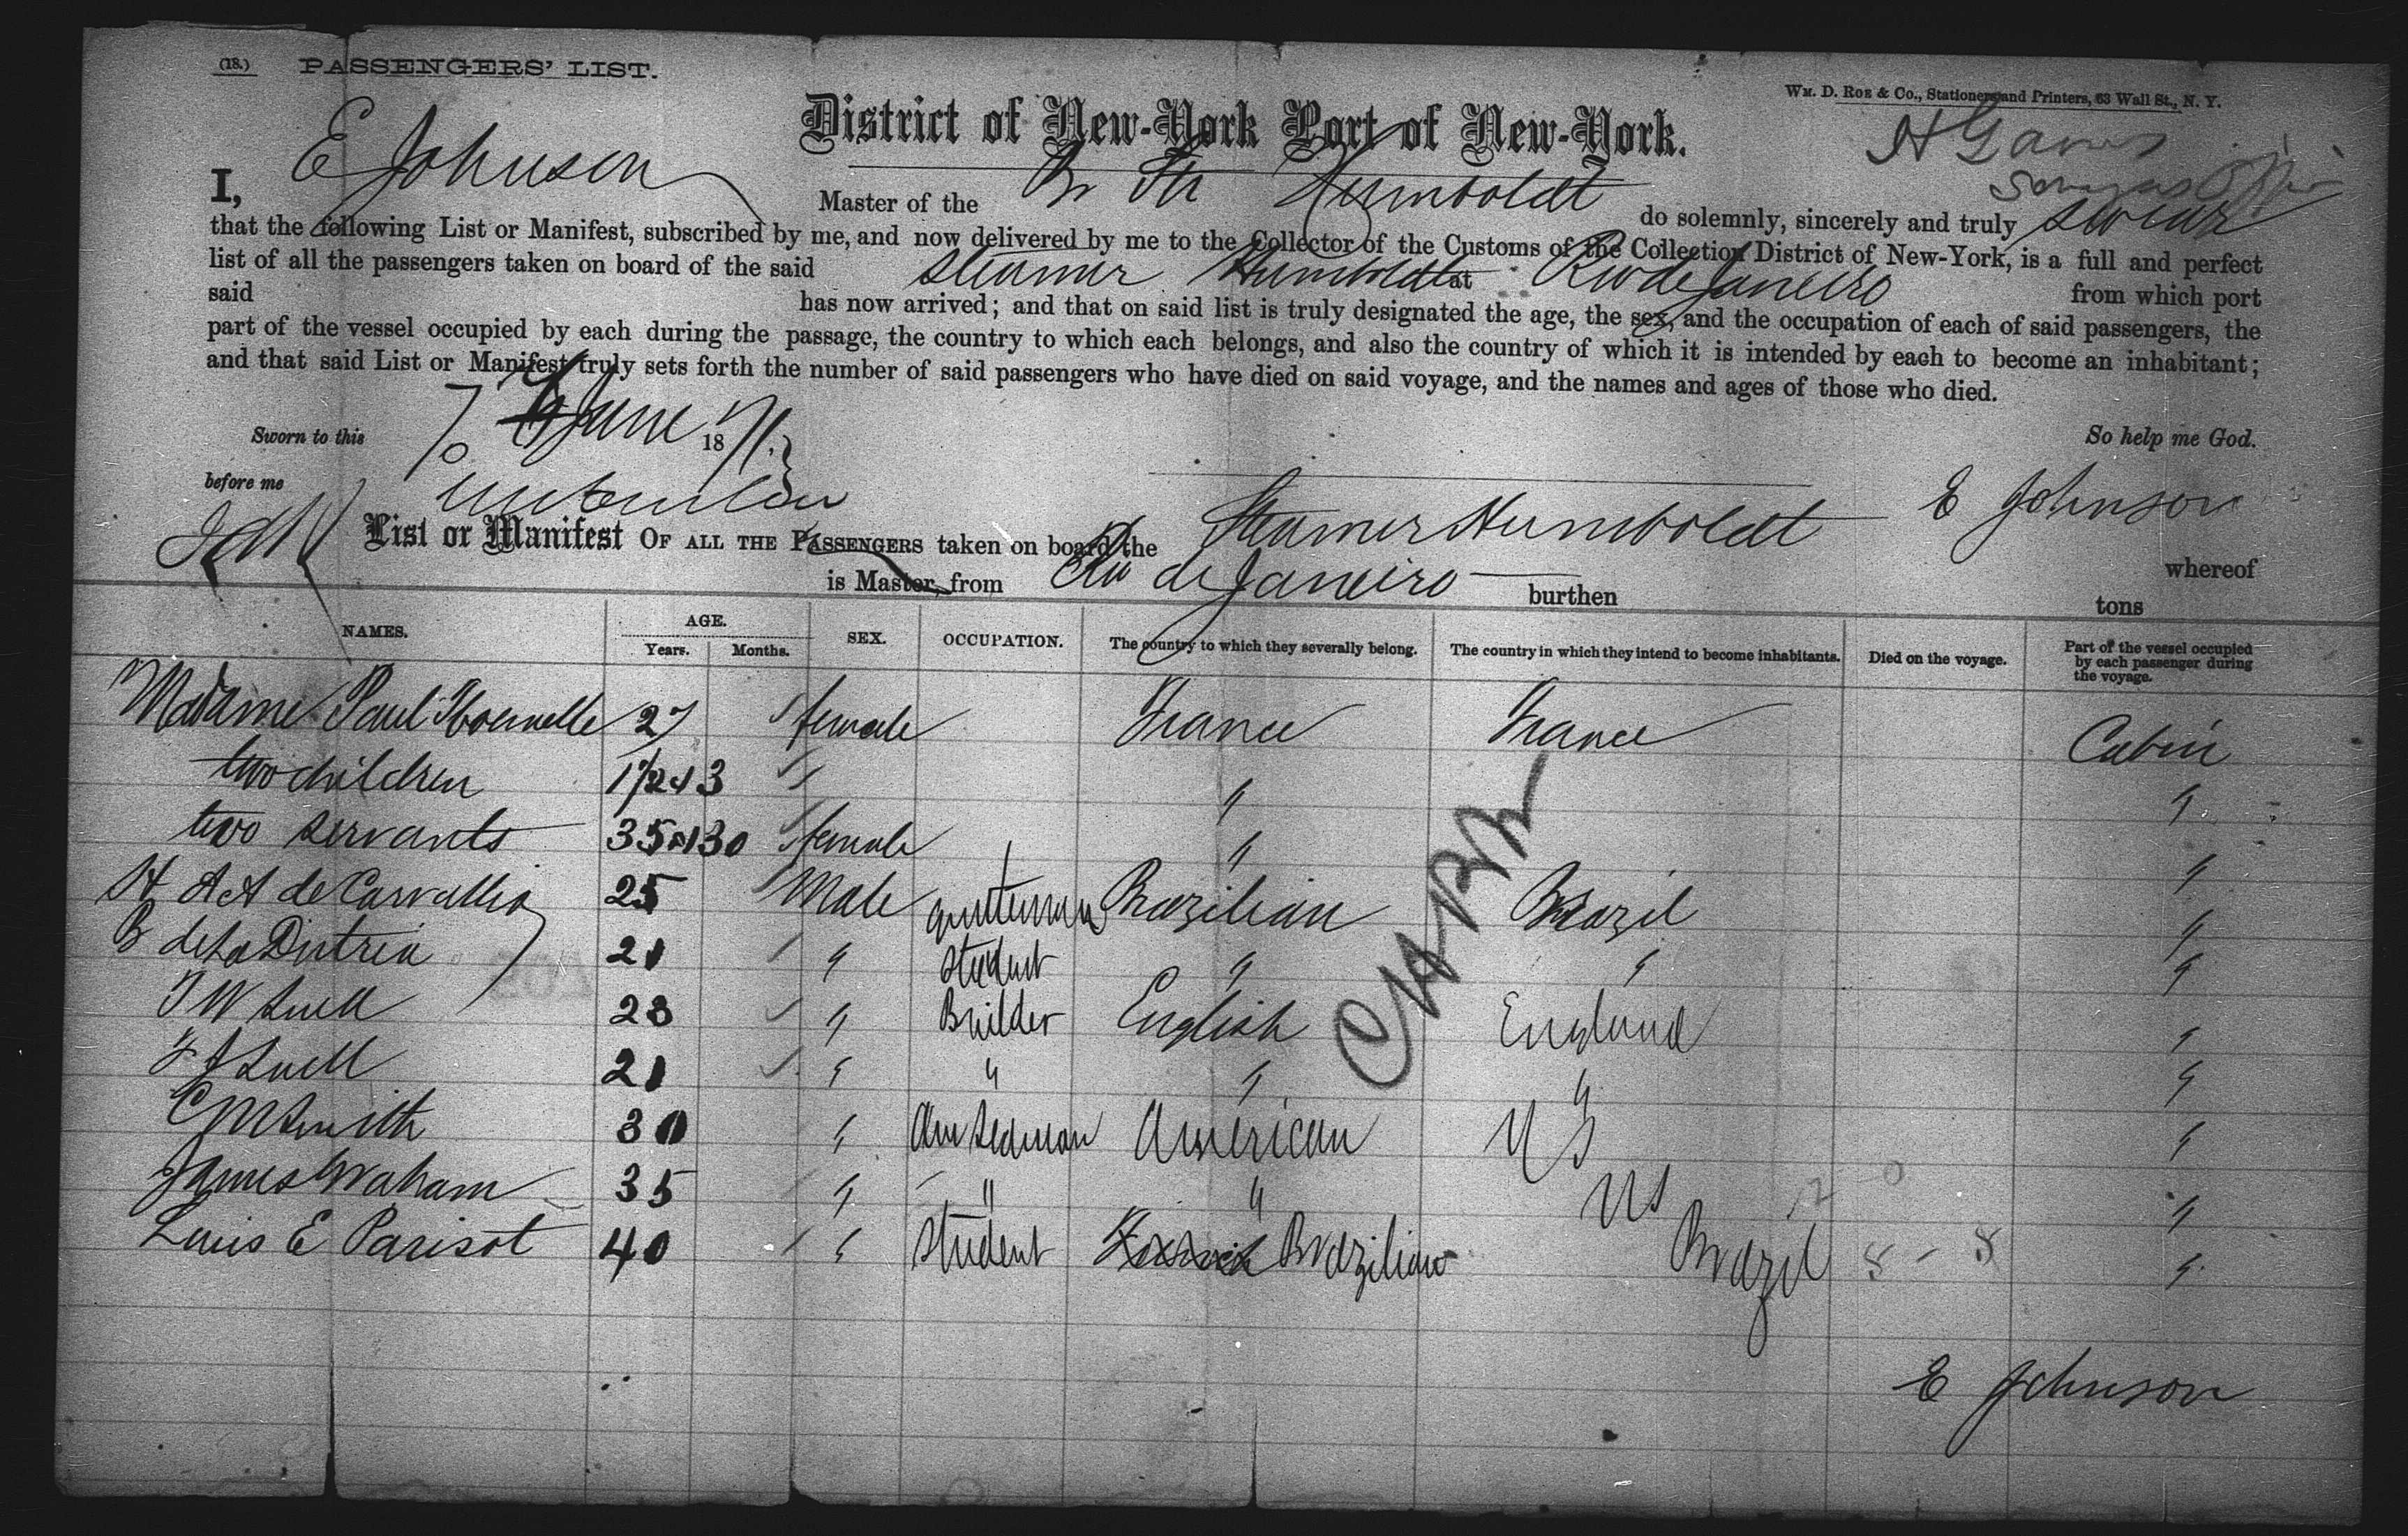 (18.) PASSENGERS' LIST.
WM. D. ROE & CO., Stationers and Printers, 63 Wall St., N. Y.
District of New-York Port of New-York.
I, E Johnson Master of the Br Str Humboldt do solemnly, sincerely and truly swear
that the following List or Manifest, subscribed by me, and now delivered by me to the Collector of the Customs of the Collection District of New-York, is a full and perfect
list of all the passengers taken on board of the said steamer Humboldt at Rio de Janeiro from which port
said has now arrived; and that on said list is truly designated the age, the sex, and the occupation of each of said passengers, the
part of the vessel occupied by each during the passage, the country to which each belongs, and also the country of which it is intended by each to become an inhabitant;
and that said List or Manifest truly sets forth the number of said passengers who have died on said voyage, and the names and ages of those who died.
Sworn to this 7 June 18 71. So help me God.
before me E Johnson
List or Manifest OF ALL THE PASSENGERS taken on board the Steamer Humboldt whereof
is Master, from Rio de Janeiro burthen tons
NAMES. AGE. Years. Months. SEX. OCCUPATION. The country to which they severally belong. The country in which they intend to become inhabitants. Died on the voyage. Part of the vessel occupied by each passenger during the voyage.
Madame Paul 27 female France France Cabin
two children 1 1/2 & 3 " "
two servants 35 & 30 female " "
de Carvalho 25 Male gentleman Brazilian Brazil "
B 21 " Student " " "
23 " Builder English England "
21 " " " " "
C M Smith 30 " Am Seaman American U S "
James Graham 35 " " " U S "
Louis E Parisot 40 " Student Brazilian Brazil 8 - 8 "
E Johnson